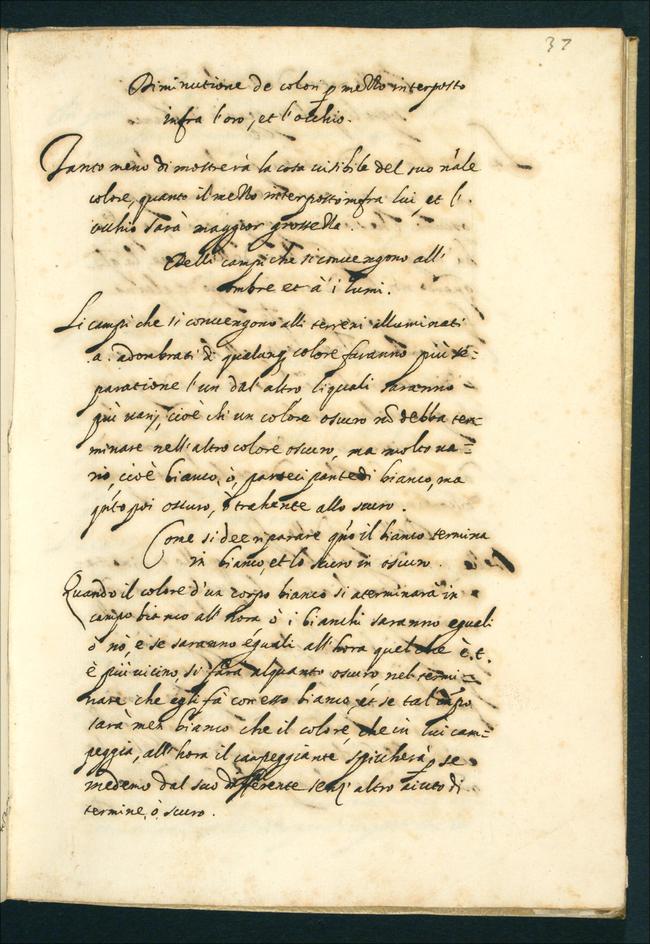 37
Diminutione de colori ꝑ mezzo interposto
infra loro, et l'occhio.
Tanto meno dimostrerà la cosa visibile del suo n̄ale
colore, quanto il mezzo interposto infra lui, et l'
occhio sarà maggior grossezza.
Delli campi che si convengono all'
ombre et à i lumi.
Li campi che si convengono alli terreni alluminati
adombrati di qualunq; colore faranno più se=
paratione l'un dal' altro li quali saranno
più varij, cioè ch' un colore oscuro nō debba ter=
minare nell' altro colore oscuro, ma molto va=
rio, cioè bianco, ò, participante di bianco, ma
poi oscuro, ò trahente allo scuro.
Come si dee riparare qn̄o il bianco termina
in bianco, et lo scuro in oscuro.
Quando il colore d'un corpo bianco si aterminarà in
campo bianco all' hora ò i bianchi saranno eguali
ò nò, e se saranno eguali all' hora quel che è.t.
è più vicino, si farà alquanto oscuro nel termi=
nare che egli fà con esso bianco, et se tal cāpo
sarà men bianco che il colore, che in lui cam=
peggia, all' hora il campeggiante spiccherà ꝑ se
medemo dal suo differente senz' altro aiuto di
termine, ò scuro.